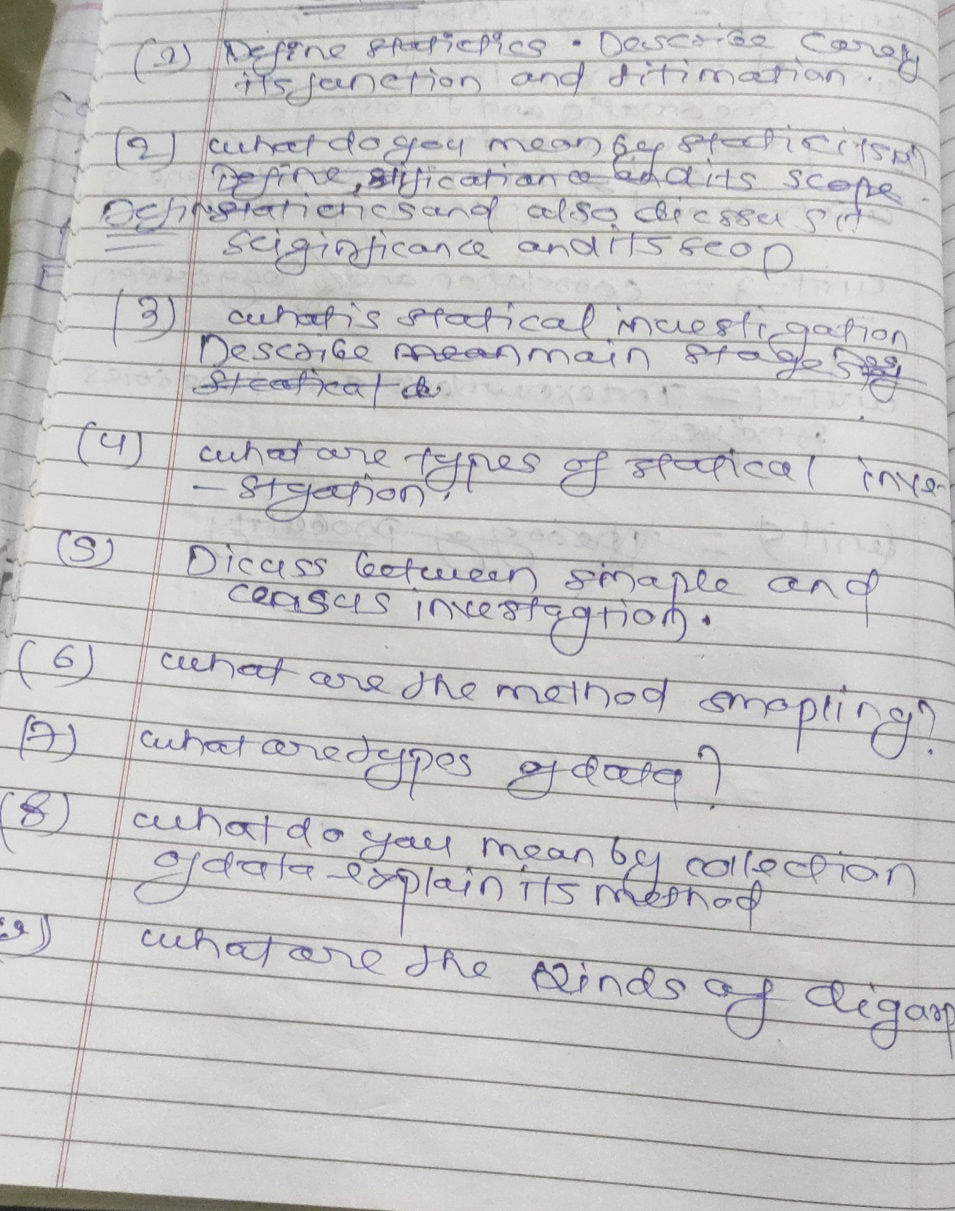 (1) Define statictics. Describe
its function and
(2) what do you mean by
Define, and its scope
Def statictics and also dicssus it
sciginficance and its scop
(3) what is statical invesfigation
Describe mean main stages
Steatical
(4) what are types of statical inve
- stgation?
(5) Dicuss between smaple and
census investagtion.
(6) what are the method smapling?
(7) what are types of data?
(8) what do you mean by collection
of data explain its method
what are the kinds of digarp